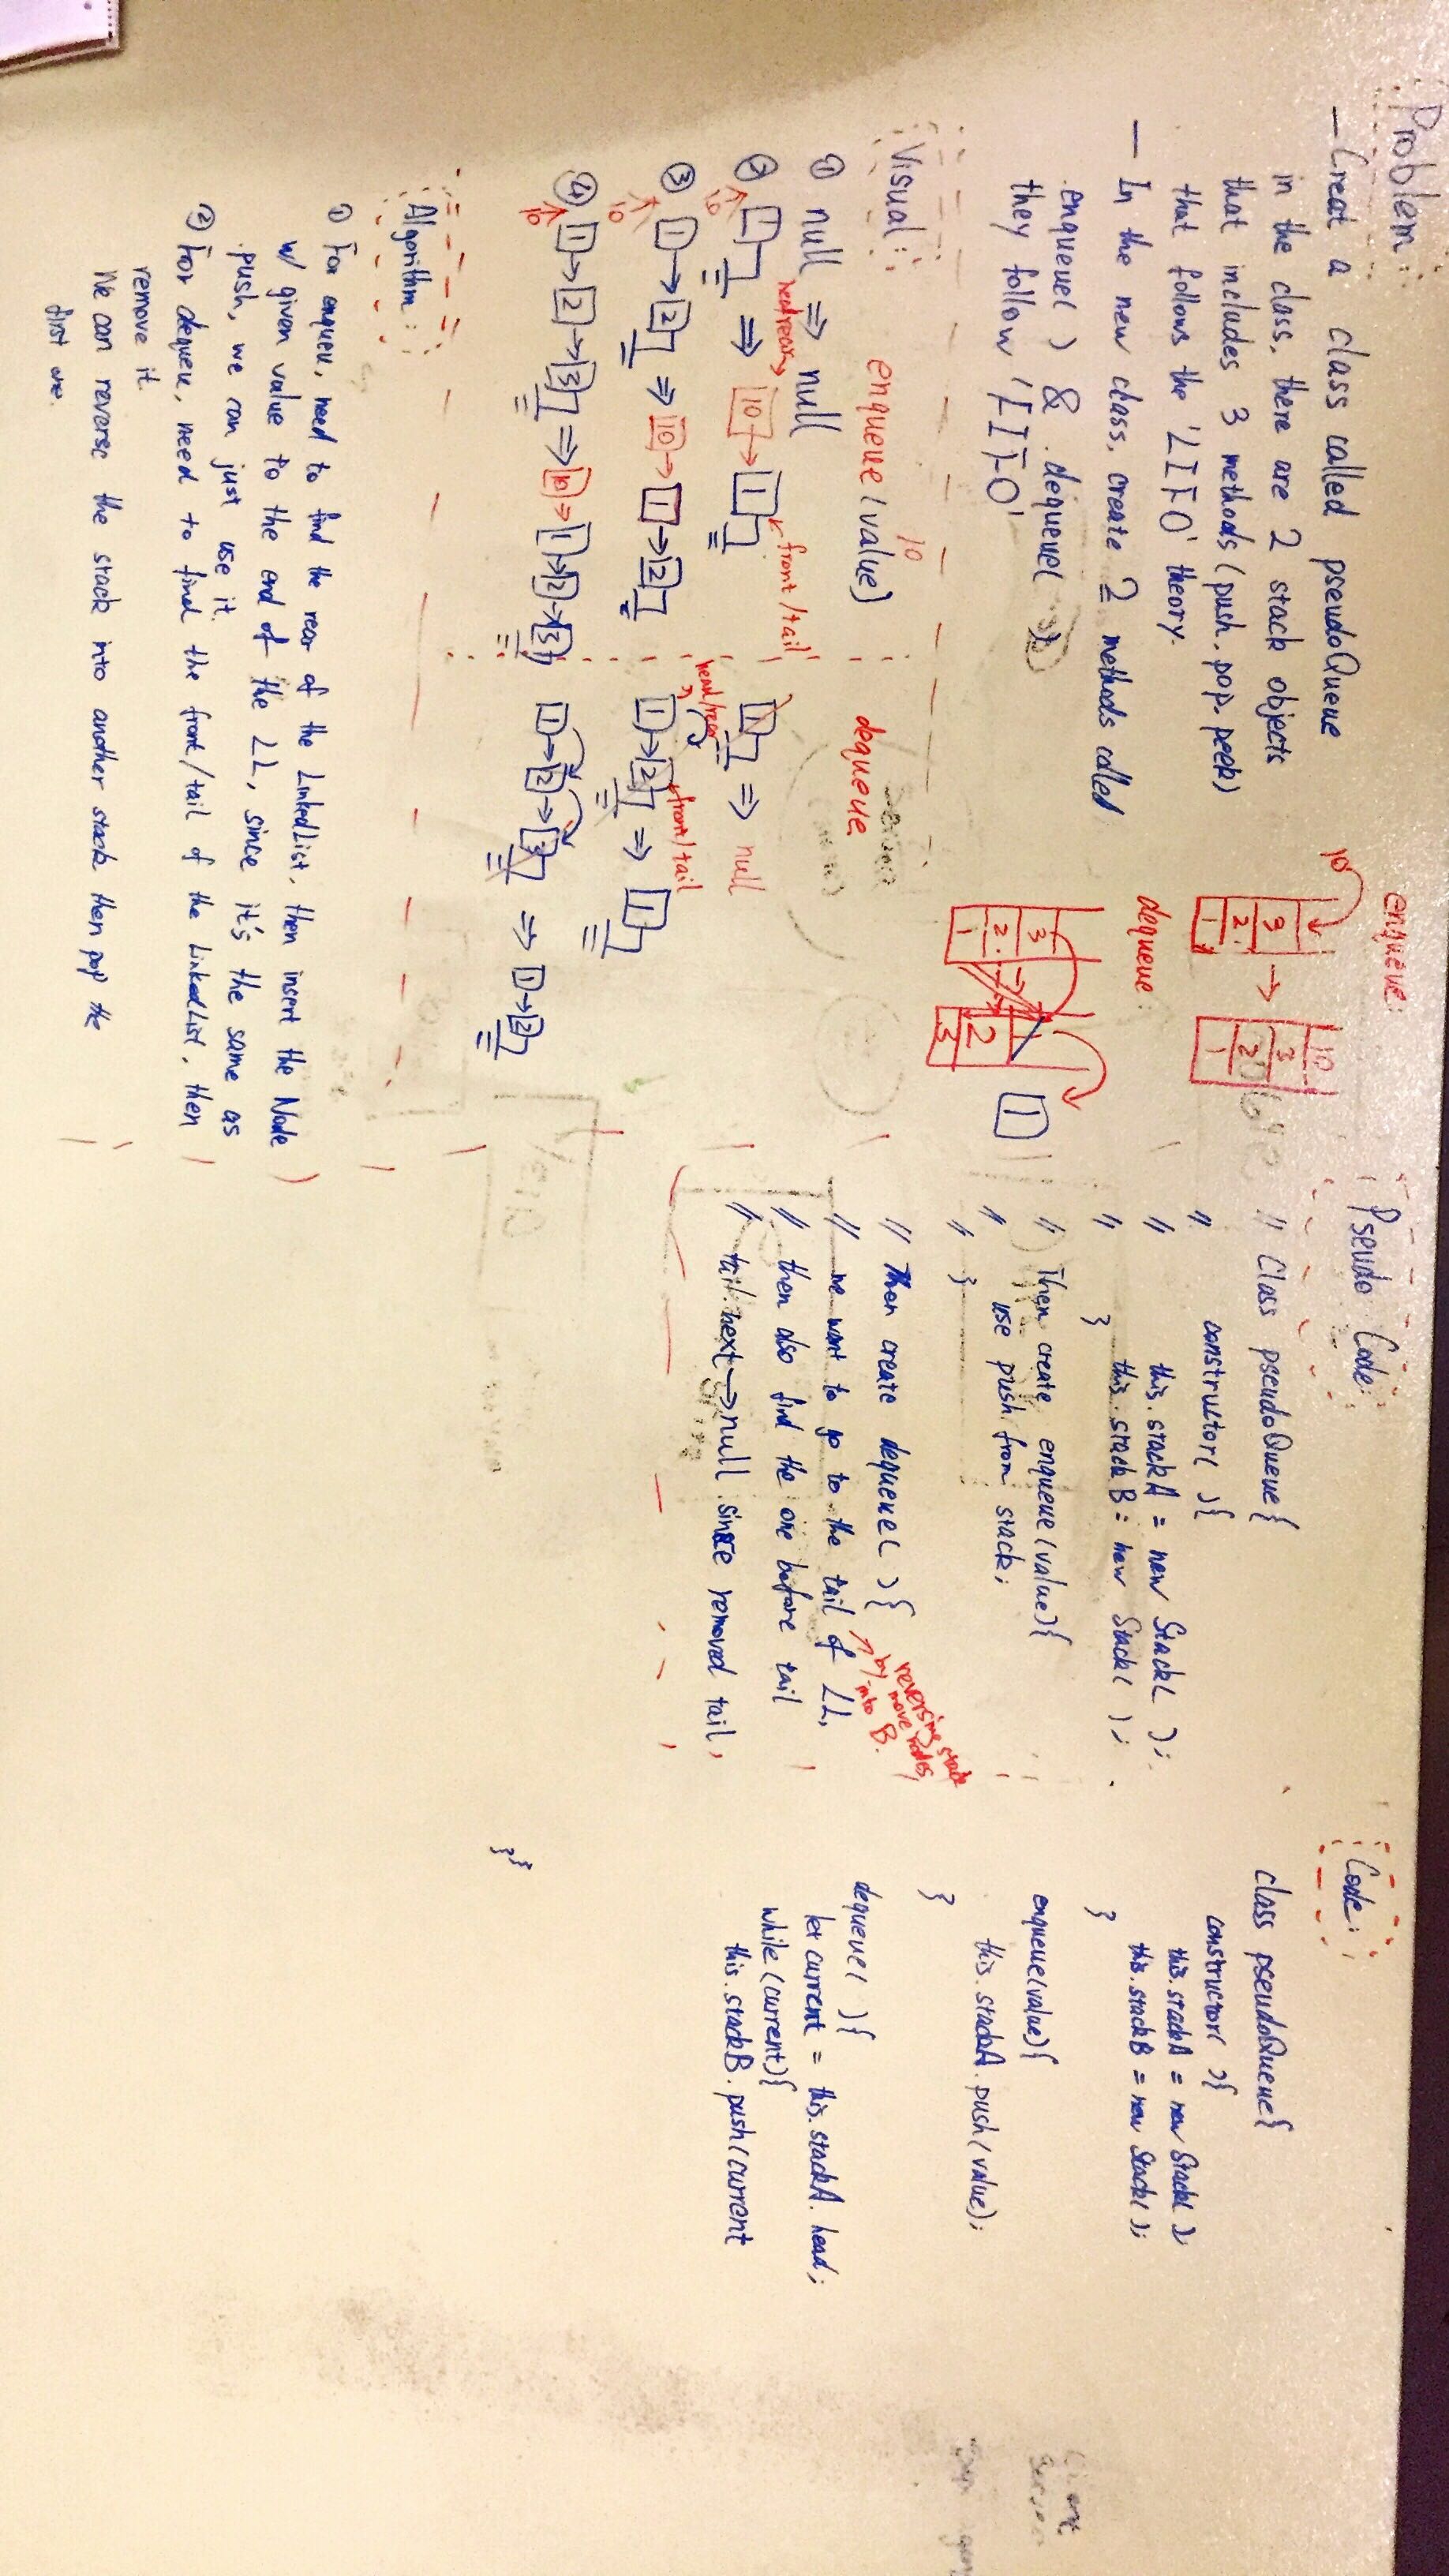 Problem:
— Creat a class called pseudoQueue
in the class, there are 2 stack objects
that includes 3 methods (push. pop. peek)
that follows the 'LIFO' theory.
— In the new class, create 2 methods called
.enqueue( ) & .dequeue( )
they follow 'FIFO'
enqueue:
10
3
2
1
→
10
3
2
1
dequeue:
3
2
1
1
2
3
1
Visual:
enqueue(value)
10
dequeue
① null ⇒ null
② 1 ⇒ 10 → 1
10
head/rear
front/tail
③ 1 → 2 ⇒ 10 → 1 → 2
10
④ 1 → 2 → 3 ⇒ 10 → 1 → 2 → 3
10
1 ⇒ null
head/rear
front/tail
1 → 2 ⇒ 1
1 → 2 → 3 ⇒ 1 → 2
Algorithm:
① For enqueu, need to find the rear of the LinkedList, then insert the Node
w/ given value to the end of the LL, since it's the same as
.push, we can just use it.
② For dequeu, need to find the front/tail of the LinkedList, then
remove it.
We can reverse the stack into another stack then pop the
first one.
Pseudo Code:
// Class pseudoQueue{
// constructor( ){
// this.stackA = new Stack( );
// this.stackB = new Stack( );
}
// Then create enqueue(value){
// use push from stack;
// }
// Then create dequeue( ){
// we want to go to the tail of LL,
reversing stack
by move nodes
into B.
// then also find the one before tail
// tail.next → null since removed tail,
Code:
class pseudoQueue{
constructor( ){
this.stackA = new Stack( );
this.stackB = new Stack( );
}
enqueue(value){
this.stackA.push(value);
}
dequeue( ){
let current = this.stackA.head;
while(current){
this.stackB.push(current
}}